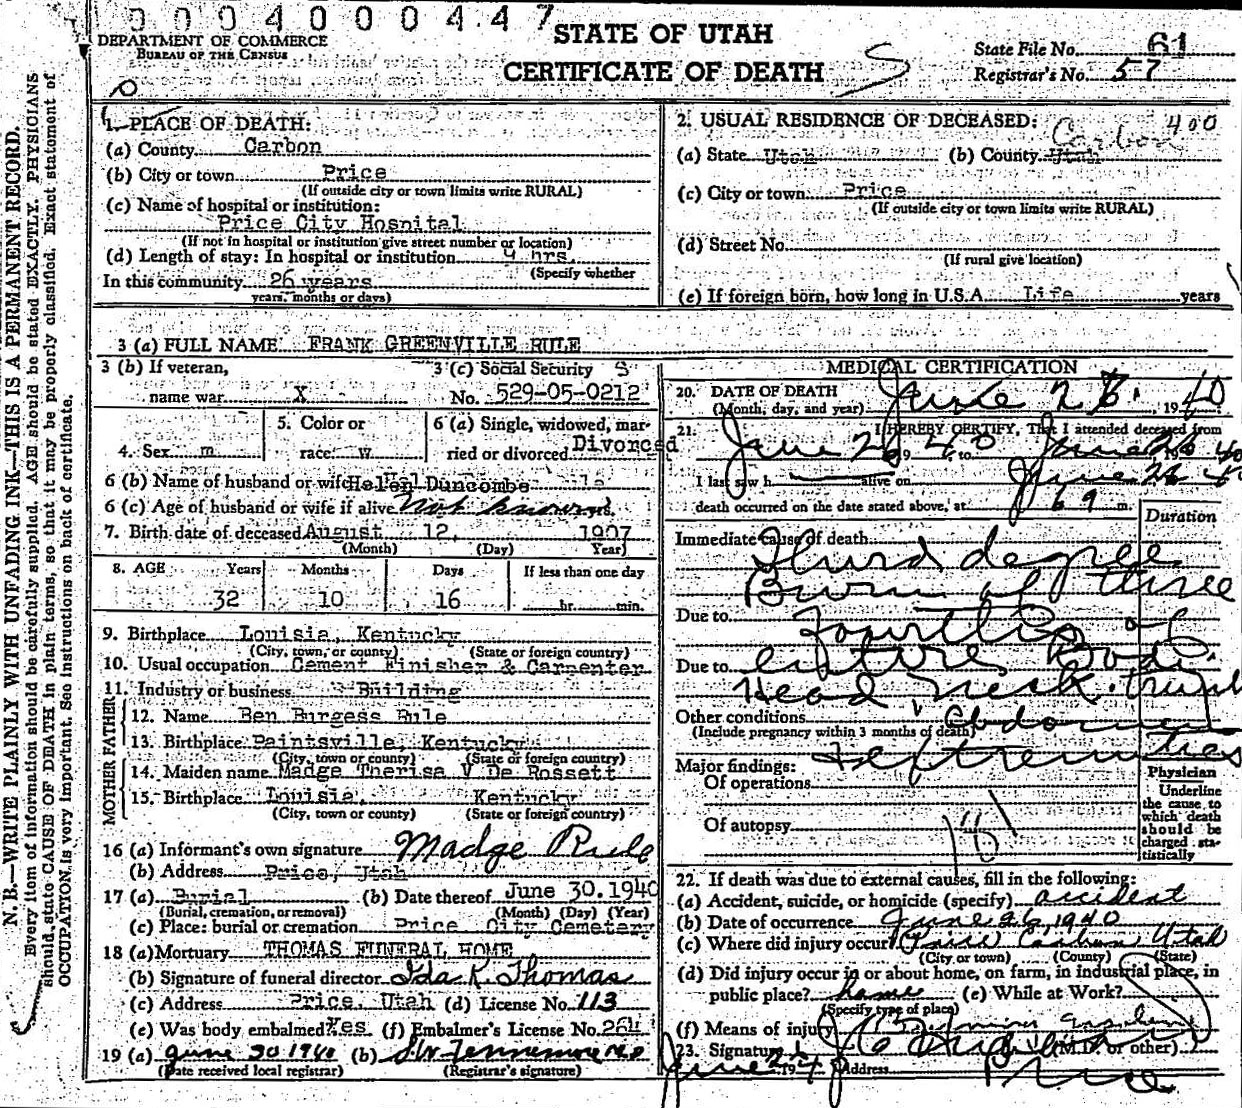 0004000447
STATE OF UTAH
CERTIFICATE OF DEATH
DEPARTMENT OF COMMERCE
BUREAU OF THE CENSUS
State File No. 61
Registrar's No. 57
N. B.—WRITE PLAINLY WITH UNFADING INK—THIS IS A PERMANENT RECORD.
Every item of information should be carefully supplied. AGE should be stated EXACTLY. PHYSICIANS
should state CAUSE OF DEATH in plain terms, so that it may be properly classified. Exact statement of
OCCUPATION is very important. See instructions on back of certificate.
1. PLACE OF DEATH:
(a) County Carbon
(b) City or town Price
(If outside city or town limits write RURAL)
(c) Name of hospital or institution:
Price City Hospital
(If not in hospital or institution give street number or location)
(d) Length of stay: In hospital or institution 4 hrs.
(Specify whether
In this community 26 years
years, months or days)
2. USUAL RESIDENCE OF DECEASED: 400
Carbon
(a) State Utah (b) County Utah
(c) City or town Price
(If outside city or town limits write RURAL)
(d) Street No.
(If rural give location)
(e) If foreign born, how long in U.S.A. Life years
3 (a) FULL NAME FRANK GREENVILLE RULE
3 (b) If veteran,
name war X
3 (c) Social Security S
No. 529-05-0212
4. Sex m
5. Color or
race w
6 (a) Single, widowed, mar-
ried or divorced Divorced
6 (b) Name of husband or wife Helen Duncombe
6 (c) Age of husband or wife if alive Not known
7. Birth date of deceased August 12, 1907
(Month) (Day) Year)
8. AGE Years Months Days If less than one day
32 10 16 hr. min.
9. Birthplace Louisia, Kentucky
(City, town, or county) (State or foreign country)
10. Usual occupation Cement Finisher & Carpenter
11. Industry or business Building
FATHER
12. Name Ben Burgess Rule
13. Birthplace Paintsville, Kentucky
(City, town or county) (State or foreign country)
MOTHER
14. Maiden name Madge Therisa V De Rossett
15. Birthplace Louisia, Kentucky
(City, town or county) (State or foreign country)
16 (a) Informant's own signature Madge Rule
(b) Address Price, Utah
17 (a) Burial (b) Date thereof June 30, 1940
(Burial, cremation, or removal) (Month) (Day) (Year)
(c) Place: burial or cremation Price City Cemetery
18 (a) Mortuary THOMAS FUNERAL HOME
(b) Signature of funeral director Ida K. Thomas
(c) Address Price, Utah (d) License No. 113
(e) Was body embalmed? Yes (f) Embalmer's License No. 264
19 (a) June 30 1940 (b)
(Date received local registrar) (Registrar's signature)
MEDICAL CERTIFICATION
20. DATE OF DEATH
(Month, day, and year) June 1940
21. I HEREBY CERTIFY, That I attended deceased from
June 26 1940 to June 26 1940
I last saw h alive on June 26 40
death occurred on the date stated above, at 6 9 m.
Duration
Immediate cause of death Third degree
Burn of three
Due to fourths of
Due to entire Body.
Head, Neck, trunk
Other conditions Abdomen
(Include pregnancy within 3 months of death)
&extremities
Major findings:
Of operations
Of autopsy
Physician
Underline
the cause to
which death
should be
charged sta-
tistically
22. If death was due to external causes, fill in the following:
(a) Accident, suicide, or homicide (specify) accident
(b) Date of occurrence June 26, 1940
(c) Where did injury occur? Price Carbon Utah
(City or town) (County) (State)
(d) Did injury occur in or about home, on farm, in industrial place, in
public place? home (e) While at Work?
(Specify type of place)
(f) Means of injury
23. Signature (M.D. or other)
June 194 Address Price